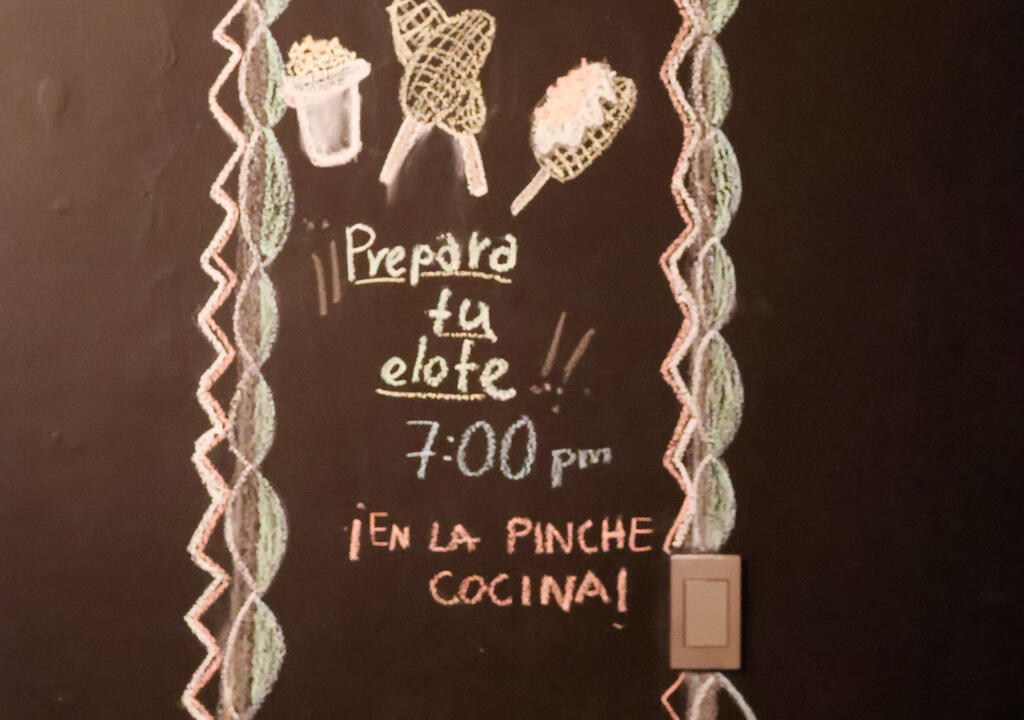 ¡¡Prepara
tu
elote!!
7:00 pm
¡EN LA PINCHE
COCINA!